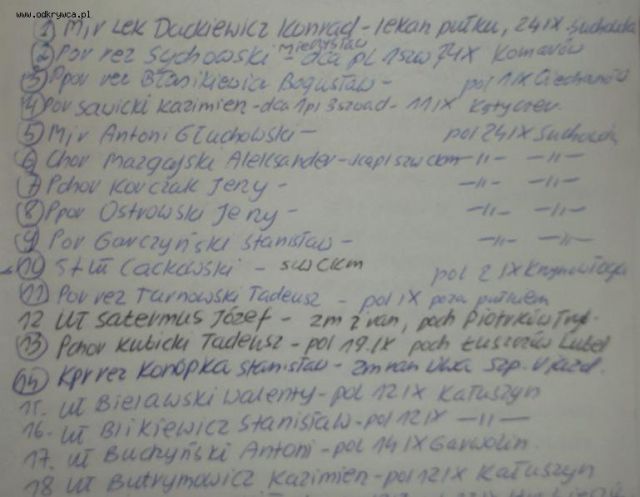 www.odkrywca.pl
1) Mjr Lek Dackiewicz Konrad - lekarz pułku, 24 IX Suchowola
2) Por rez Sychowski Mieczysław - dca pl 1szw 74X Komarów
3) Ppor rez Błonikiewia Bogusław - pol 1 IX Ciechanów
4 Por Sawicki Kazimierz - dca 1pl 3szwad - 11 IX
5) Mjr Antoni Głuchowski - pol 24 IX Suchowola
6) Chor Mazgajski Aleksander - szwckm -"- -"-
7) Pchor Korczak Jerzy - -"- -"-
8) Ppor Ostrowski Jerzy - -"- -"-
9) Por Garczyński Stanisław - -"- -"-
10) St uł Cackowski - sw ckm pol 2 IX Krzynowłoga
11) Por rez Turnowski Tadeusz - pol IX poza pułkiem
12 Uł Satermus Józef - zm z ran, poch Piotrków Tryb.
13) Pchor Kubicki Tadeusz - pol 19.IX poch Łuszczów Lubel
14) Kpr rez Konopka Stanisław - zm ran Szp. Ujazd.
15. uł Bielawski Walenty - pol 12 IX Kałuszyn
16. uł Blikiewicz Stanisław - pol 12 IX -"-
17. uł Buchyński Antoni - pol 14 IX Garwolin
18 uł Butrymowicz Kazimierz - pol 12 IX Kałuszyn